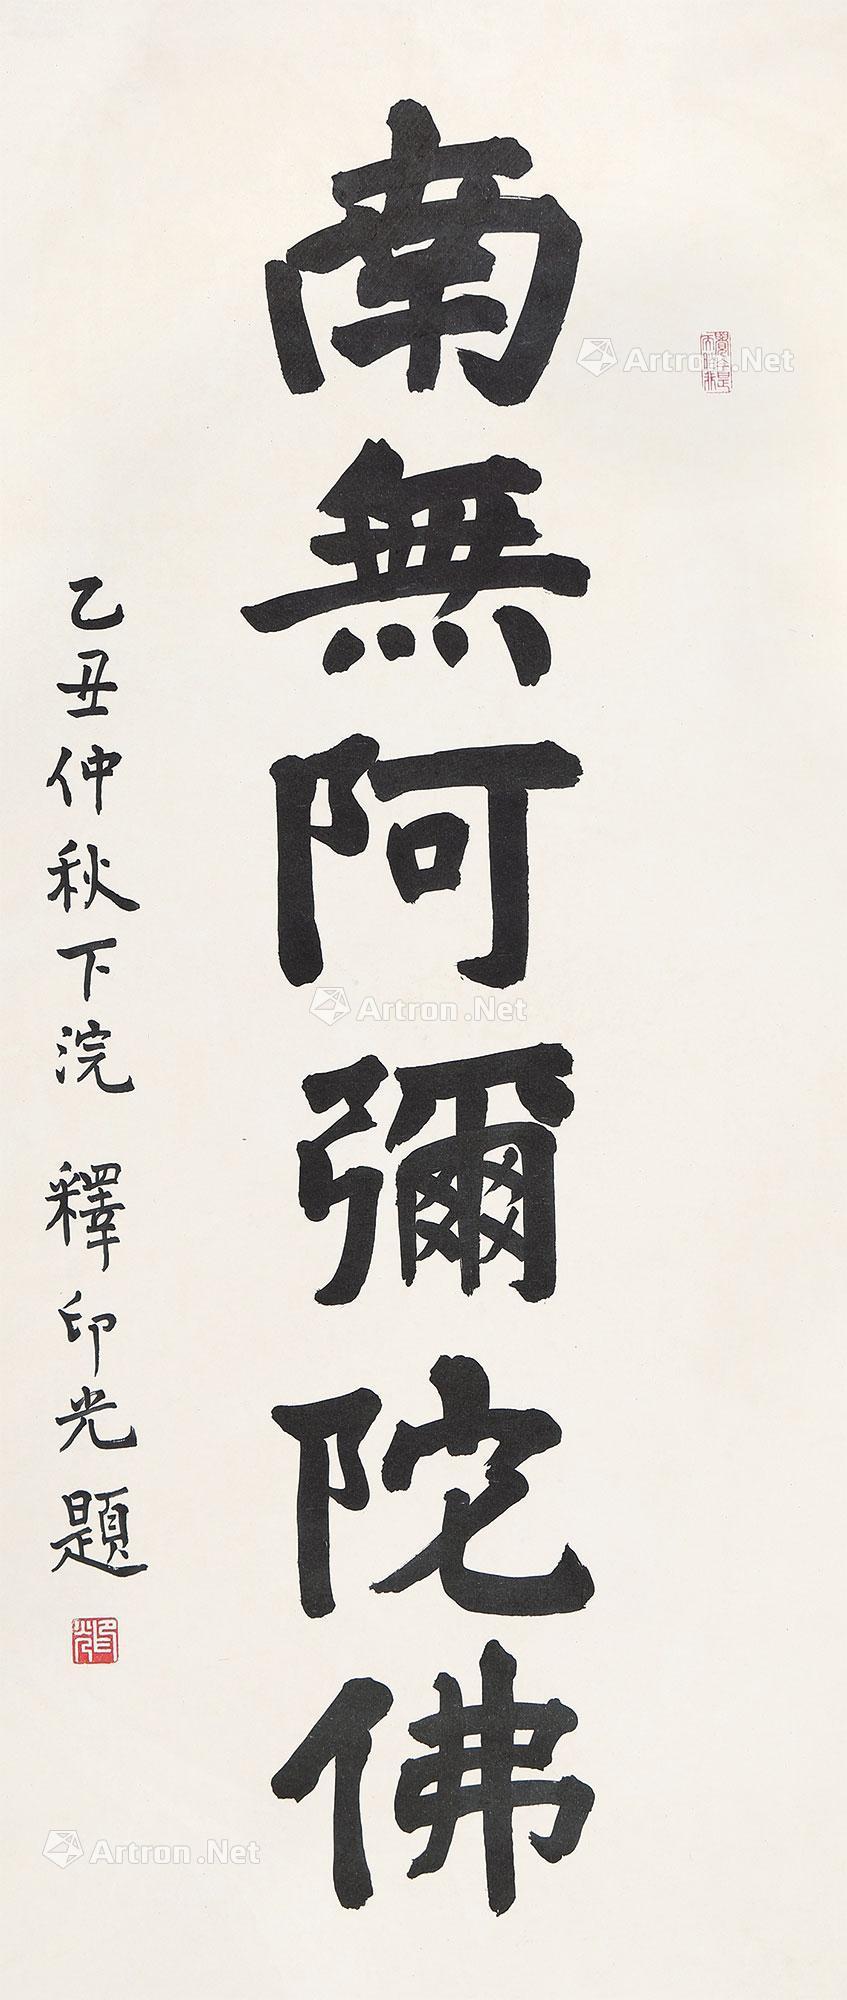 南無阿彌陀佛
乙丑仲秋下浣 釋印光題
印光
Artron.Net
Artron.Net
Artron.Net